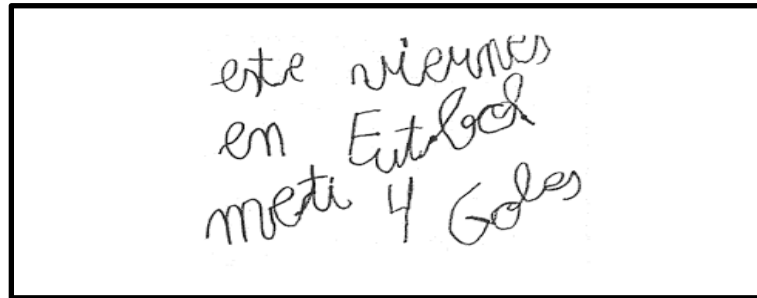 este viernes
en Futbol
meti 4 Goles